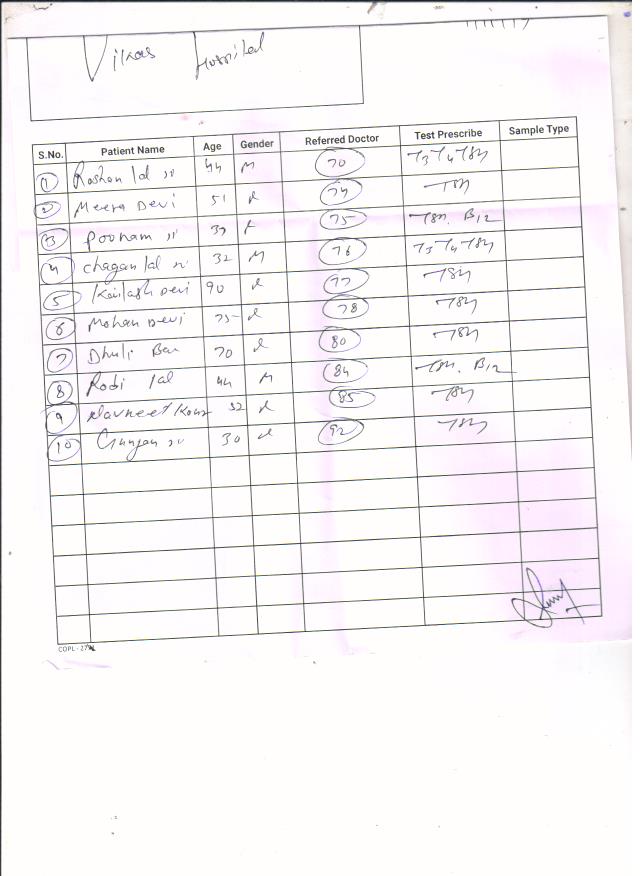 Vikas Hospital
S.No. Patient Name Age Gender Referred Doctor Test Prescribe Sample Type
1 Roshan lal 44 M 70 T3 T4 TSH
2 Meera Devi 51 F 74 TSH
3 Poonam F 75 TSH. B12
4 Chagan lal 32 M 76 T3 T4 TSH
5 Kailash Devi 90 F 77 TSH
6 Mohan Devi 75 F 78 TSH
7 Dhuli Bai 70 F 80 TSH
8 Rodi lal 44 M 84 TSH. B12
9 Navneet Kour 32 F 85 TSH
10 Gunjan 30 F 92 TSH